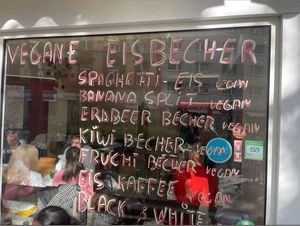 VEGANE EISBECHER
SPAGHETTI-EIS VEGAN
BANANA SPLIT VEGAN
ERDBEER BECHER VEGAN
KIWI BECHER VEGAN
FRUCHI BECHER VEGAN
EIS KAFFEE VEGAN
BLACK & WHITE